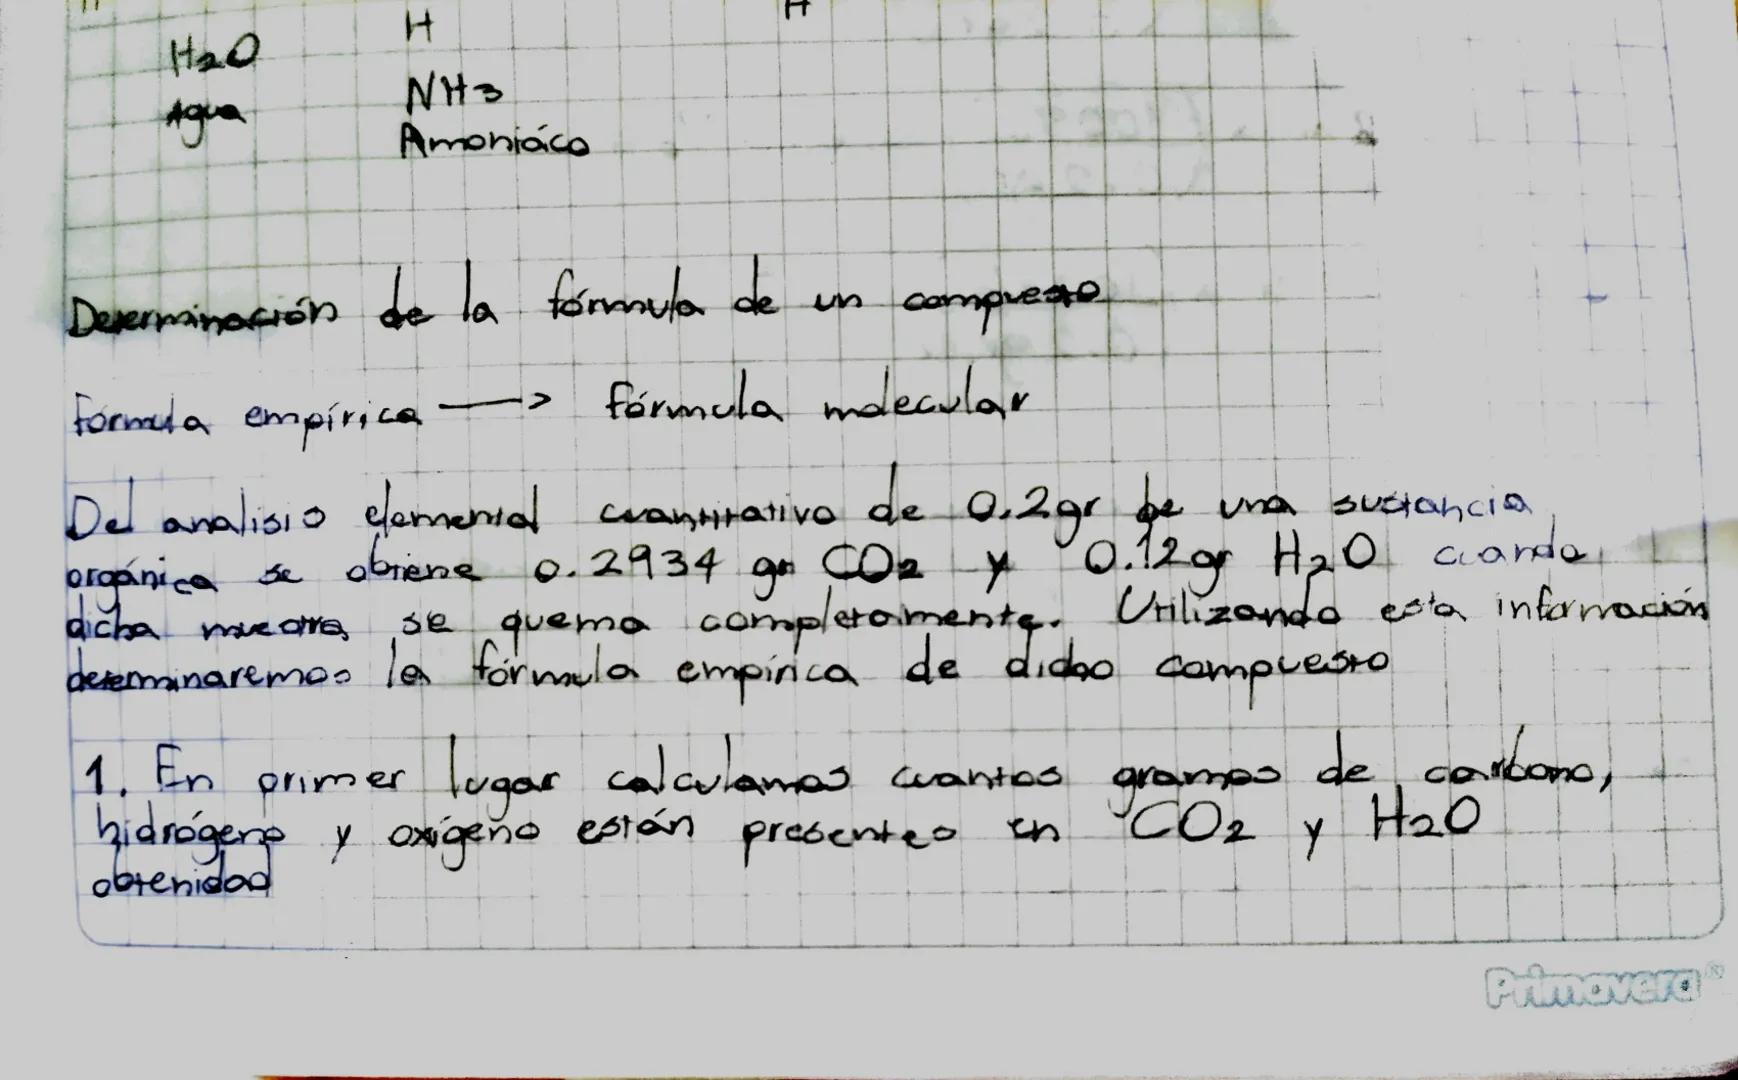 H
H
H₂O
NH₃
Agua
Amoniáco
Determinación de la fórmula de un compuesto
fórmula empírica → fórmula molecular
Del analisis elemental cuantitativo de 0.2gr de una sustancia
orgánica se obtiene 0.2934 gr CO₂ y 0.12gr H₂O cuando
dicha muestra se quema completamente. Utilizando esta información
determinaremos la fórmula empírica de dicho compuesto
1. En primer lugar calculamos cuantos gramos de carbono,
hidrógeno y oxígeno están presentes en CO₂ y H₂O
obtenidos
Primavera®